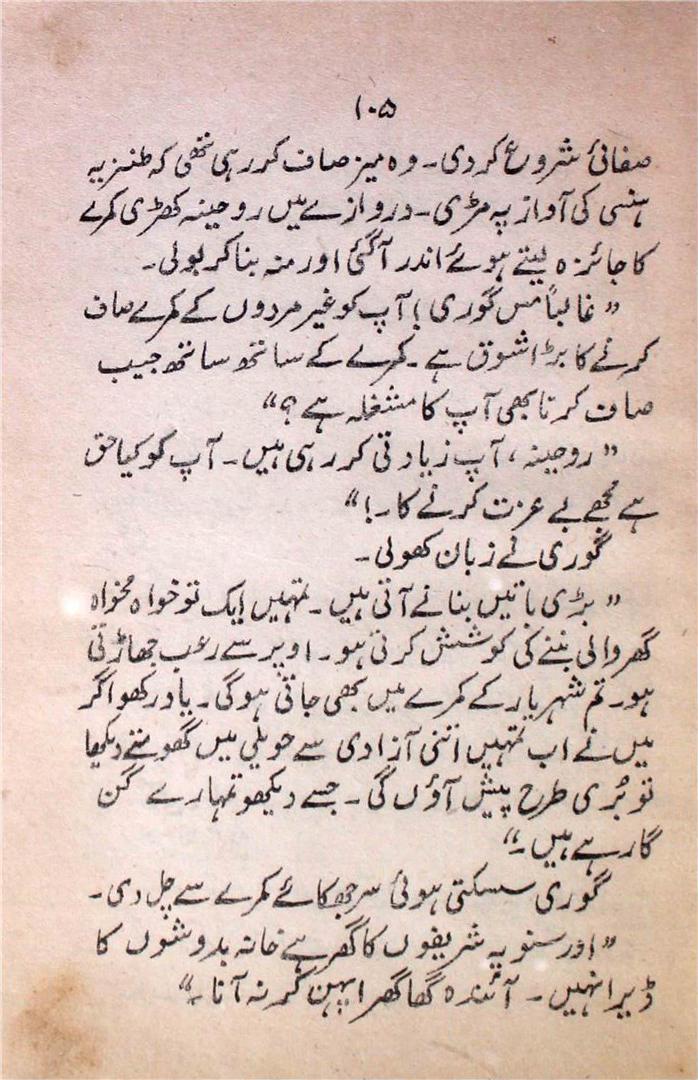 ۱۰۵
صفائی شروع کر دی۔ وہ میز صاف کر رہی تھی کہ طنزیہ
ہنسی کی آواز پہ مڑی۔ دروازے میں روحینہ کھڑی کمرے
کا جائزہ لیتے ہوئے اندر آ گئی اور منہ بنا کر بولی۔
” غالباً مس گوری ! آپ کو غیر مردوں کے کمرے صاف
کرنے کا بڑا شوق ہے ۔ کمرے کے ساتھ ساتھ جیب
صاف کرنا بھی آپ کا مشغلہ ہے ؟“
” روحینہ ، آپ زیادتی کر رہی ہیں۔ آپ کو کیا حق
ہے مجھے بے عزت کرنے کا۔ !“
گوری نے زبان کھولی ۔
” بڑی باتیں بنانے آتی ہیں ۔ تمہیں ایک تو خواہ مخواہ
گھر والی بننے کی کوشش کرتی ہو۔ اوپر سے رعب جھاڑتی
ہو۔ تم شہریار کے کمرے میں بھی جاتی ہوگی۔ یاد رکھو اگر
میں نے اب تمہیں اتنی آزادی سے حویلی میں گھومتے دیکھا
تو بُری طرح پیش آؤں گی ۔ جسے دیکھو تمہارے گن
گا رہے ہیں ۔“
گوری سسکتی ہوئی سر جھکائے کمرے سے چل دی ۔
” اور سنو یہ شریفوں کا گھر ہے خانہ بدوشوں کا
ڈیرا نہیں ۔ آئندہ گھاگھرا پہن کر نہ آنا ۔“